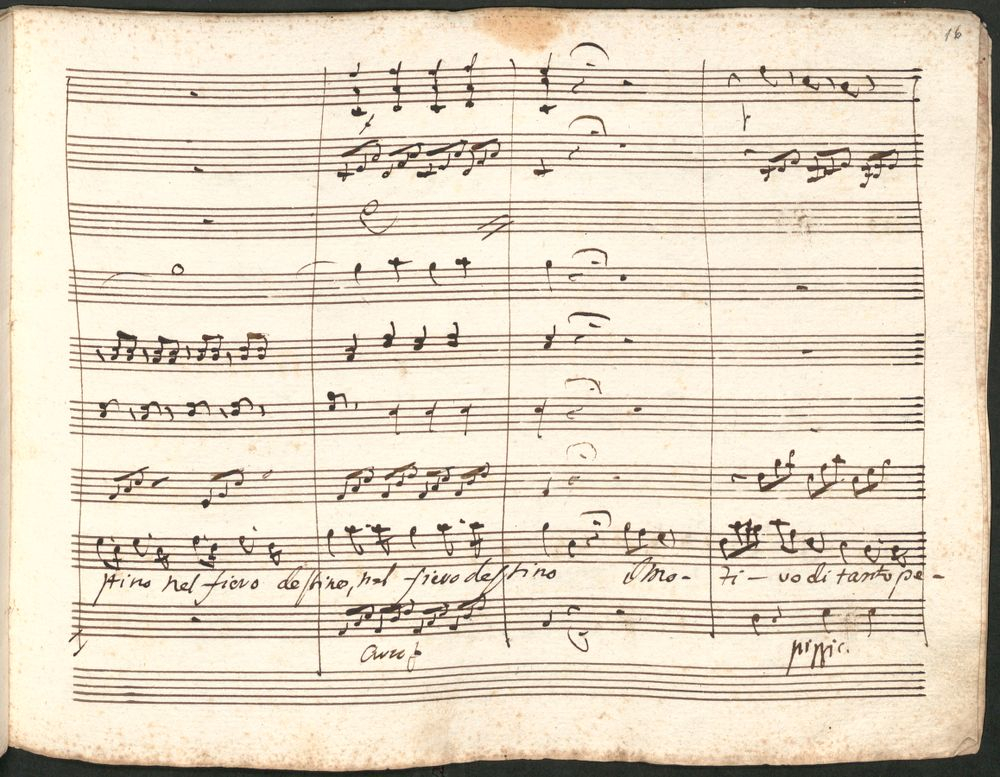 16
f
stino nel fiero destino, nel fiero destino il mo - ti - vo di tanto pe -
arco f
pizzic.